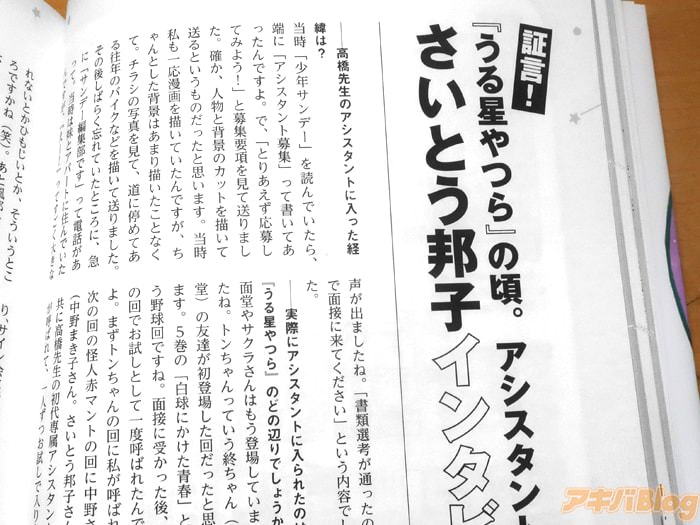 証言!
『うる星やつら』の頃。アシスタント
さいとう邦子インタビ
——高橋先生のアシスタントに入った経
緯は?
当時「少年サンデー」を読んでいたら、
端に「アシスタント募集」って書いてあ
ったんですよ。で、「とりあえず応募し
てみよう!」と募集要項を見て送りまし
た。確か、人物と背景のカットを描いて
送るというものだったと思います。当時
私も一応漫画を描いていたんですが、ち
ゃんとした背景はあまり描いたことなく
て。チラシの写真を見て、道に停めてあ
る往年のバイクなどを描いて送りました。
その後しばらく忘れていたところに、急
に「サンデー編集部です」って電話があ
って。当時は妹とアパートに住んでいた
ってすごく大きな
声が出ましたね。「書類選考が通ったの
で面接に来てください」という内容でし
た。
——実際にアシスタントに入られたのは
『うる星やつら』のどの辺りでしょうか
面堂やサクラさんはもう登場していま
たね。トンちゃんっていう終ちゃん(
堂)の友達が初登場した回だったと思
ます。5巻の「白球にかけた青春」と
う野球回ですね。面接に受かった後、
の回でお試しとして一度呼ばれたんで
よ。まずトンちゃんの回に私が呼ばれ
次の回の怪人赤マントの回に中野さ
(中野まき子さん。さいとう邦子さん
共に高橋先生の初代専属アシスタン
が呼ばれて、一人ずつお試しで入り
れないとかひもじいとか、そういうとこ
ろですかね(笑)。あと
り、サイン会
アキバBlog